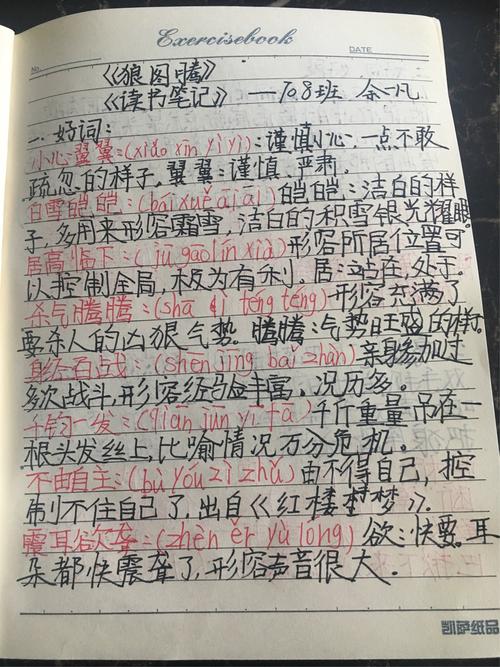 Exercisebook
No.
DATE
《狼图腾》
《读书笔记》—70.8班 余一凡
一、好词：
小心翼翼：(xiǎo xīn yì yì)：谨慎小心，一点不敢
疏忽的样子，翼翼：谨慎、严肃.
白雪皑皑：(bái xuě ái ái) 皑皑：洁白的样
子，多用来形容霜雪，洁白的积雪银光耀眼.
居高临下：(jū gāo lín xià) 形容所居位置可
以控制全局，极为有利。居：站在，处于.
杀气腾腾：(shā qì téng téng) 形容充满了
要杀人的凶狠气势。腾腾：气势旺盛的样子.
身经百战：(shēn jīng bǎi zhàn) 亲身参加过
多次战斗，形容经验丰富、况历多。
千钧一发：(qiān jūn yī fà) 千斤重量吊在一
根头发丝上，比喻情况万分危机。
不由自主：(bù yóu zì zhǔ) 由不得自己，控
制不住自己了，出自《红楼梦》.
震耳欲聋：(zhèn ěr yù lóng) 欲：快要。耳
朵都快震聋了，形容声音很大。